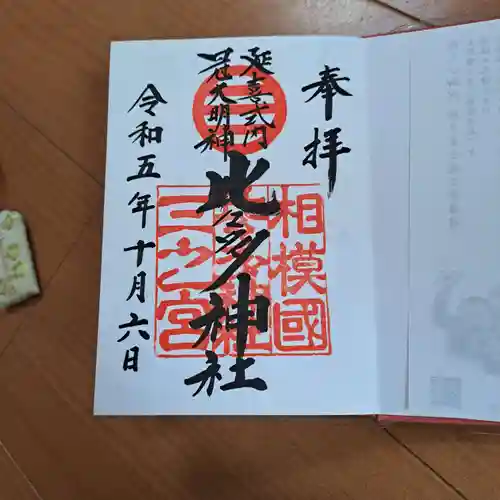 奉拝
延喜式内
冠大明神
比々多神社
令和五年十月六日
相模國
三之宮